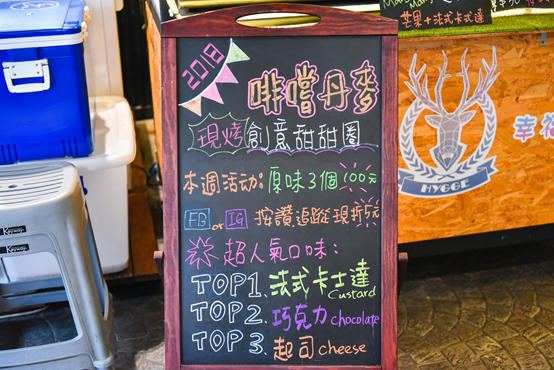 2018
啡嚐丹麥
現烤創意甜甜圈
本週活动:原味3個100元
FB or IG 按讚追蹤現折5元
超人氣口味:
TOP1、法式卡士達
Custard
TOP2、巧克力 chocolate
TOP3、起司 cheese
芒果+法式卡式達
HYGGE
幸福
Keyway